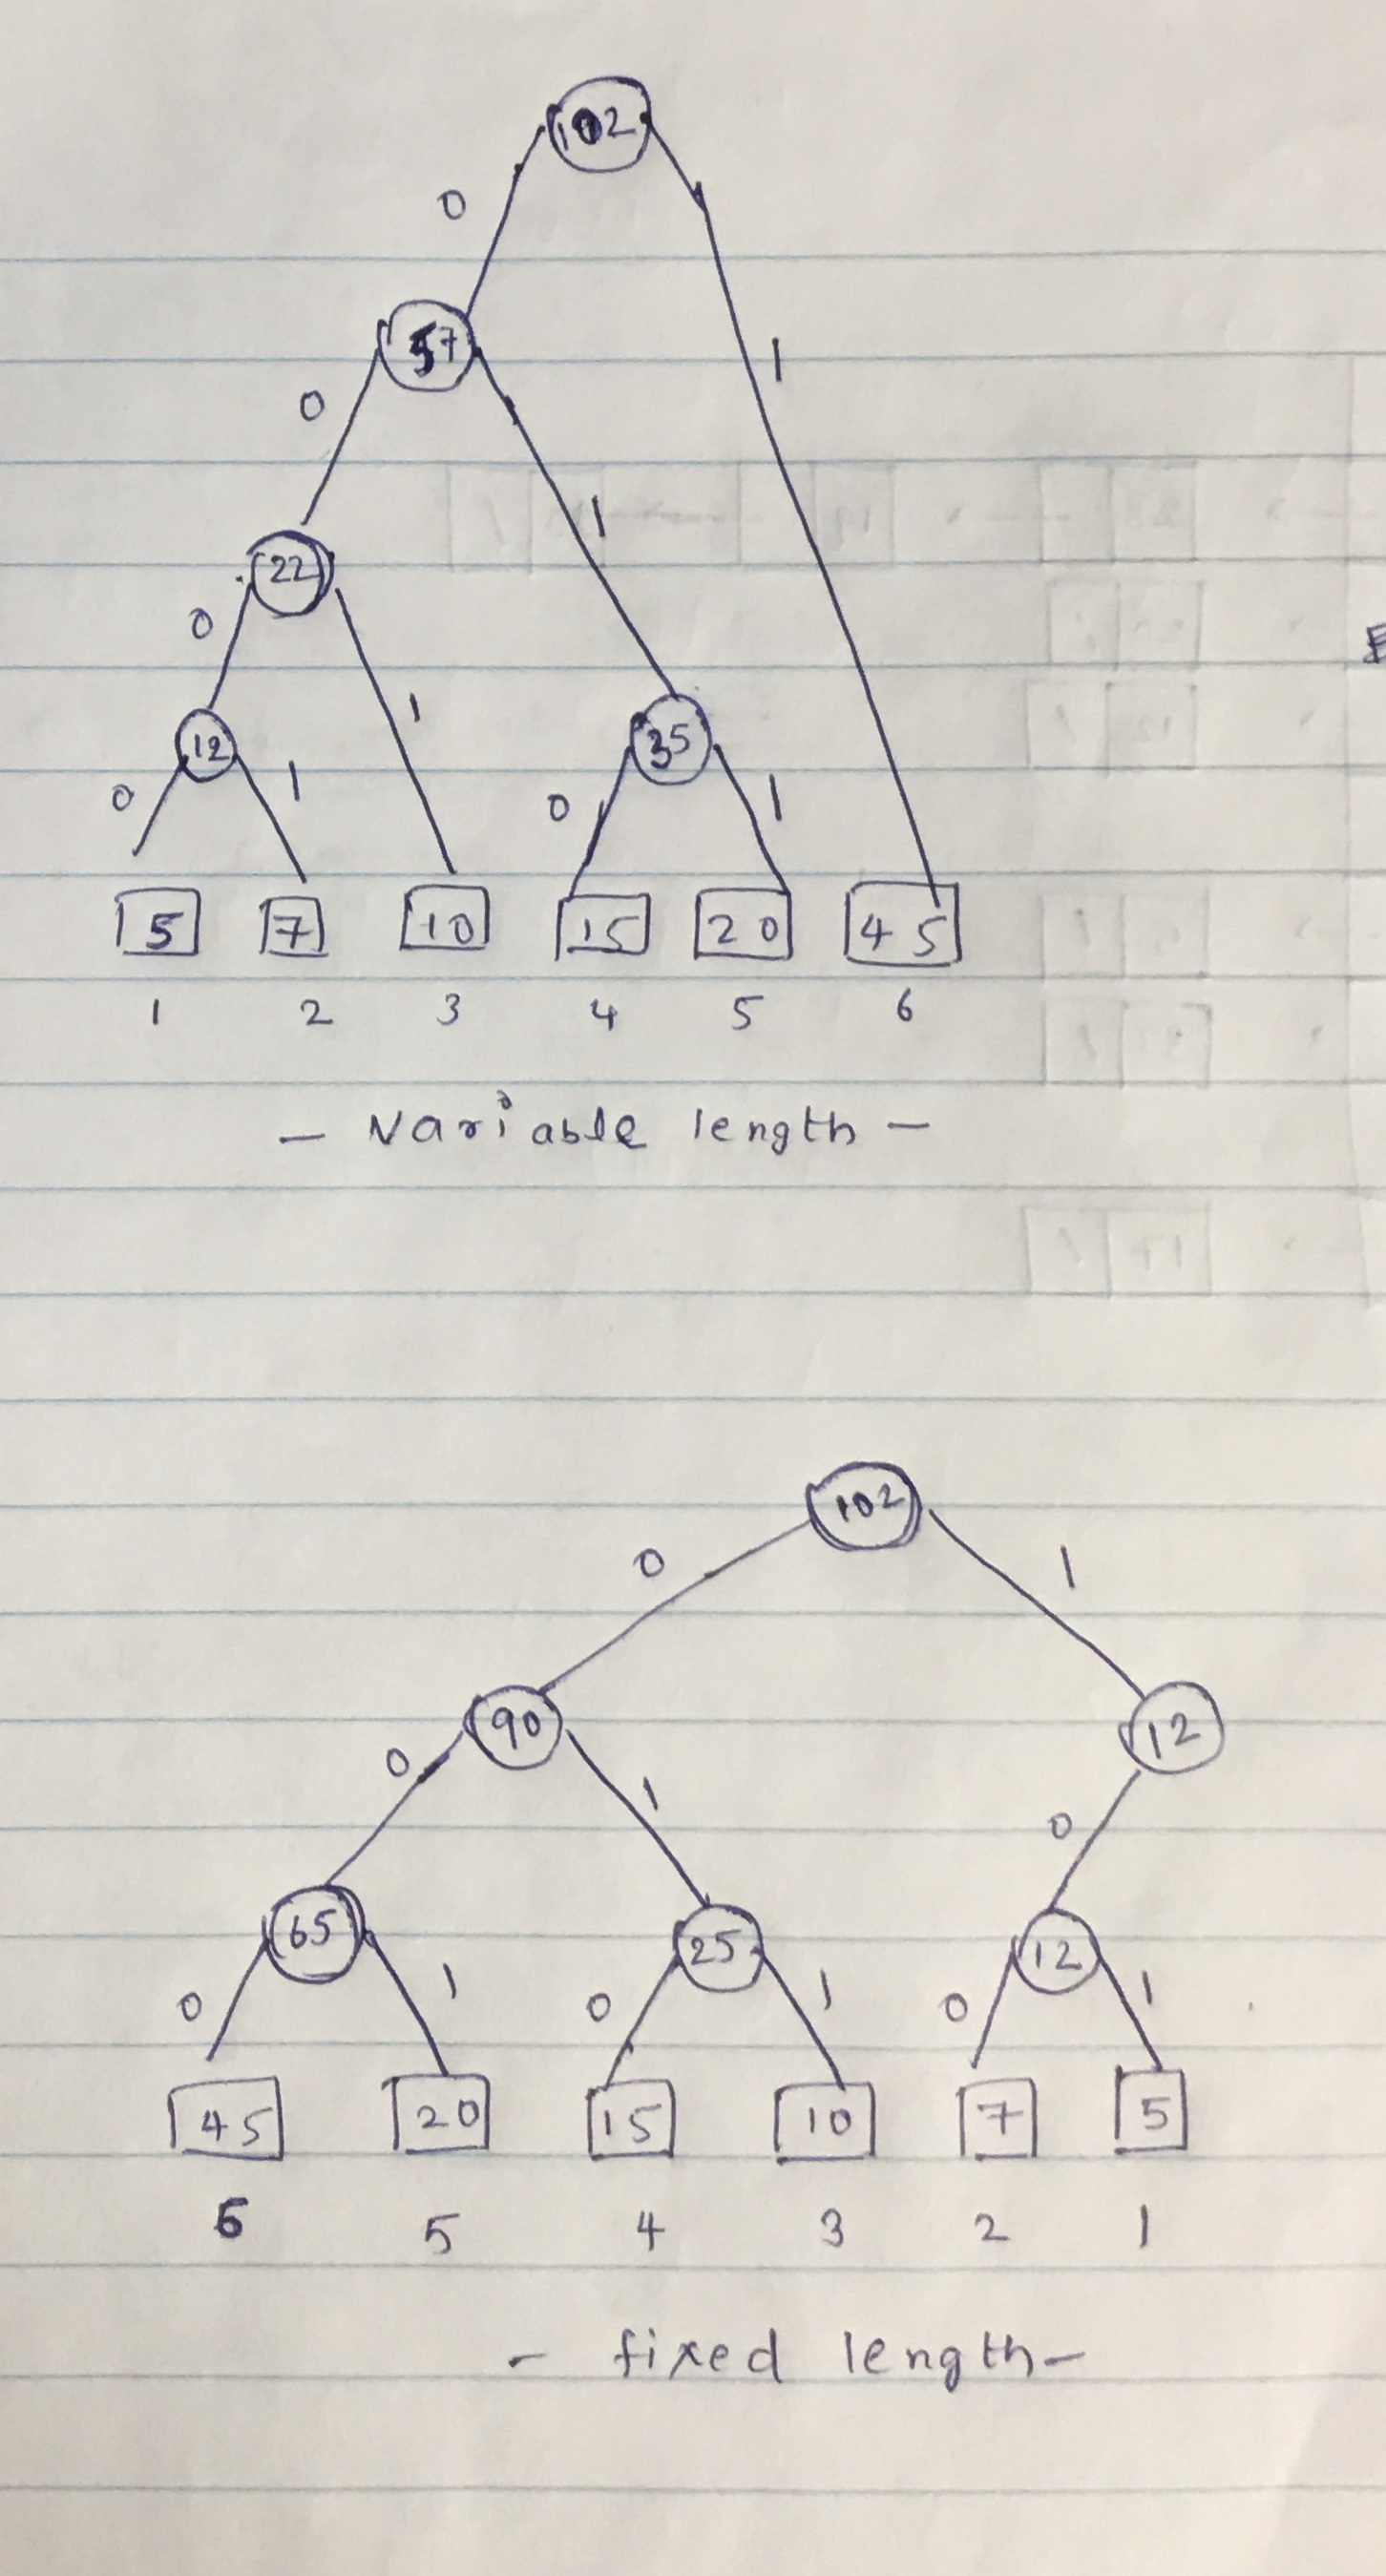 102
0
57
1
0
1
22
0
1
12
35
0
1
0
1
5 7 10 15 20 45
1 2 3 4 5 6
- Variable length -
102
0 1
90 12
0 1 0
65 25 12
0 1 0 1 0 1
45 20 15 10 7 5
6 5 4 3 2 1
- fixed length -